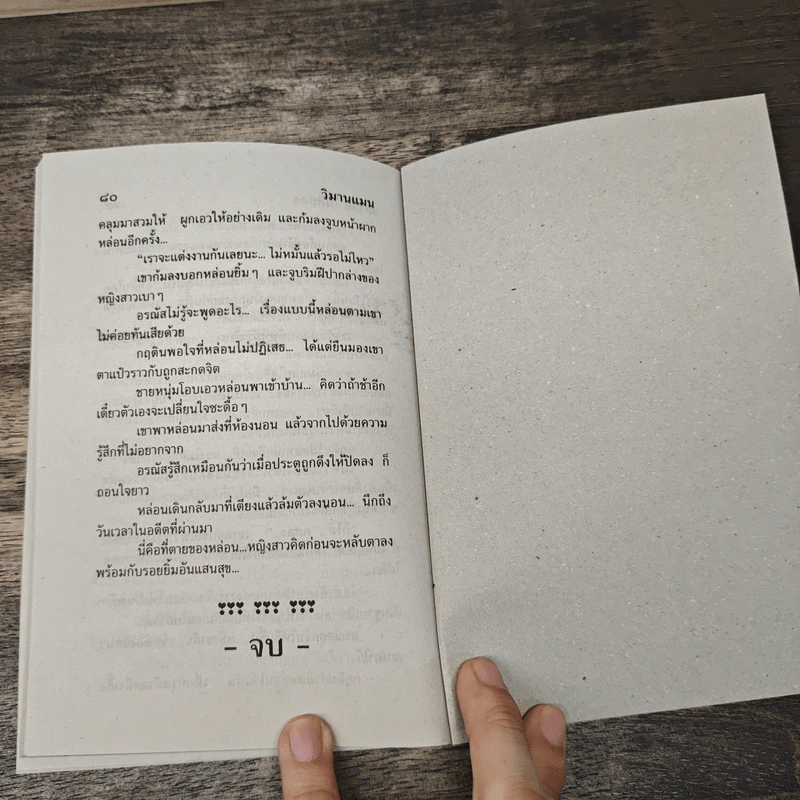 ๘๐ วิมานแมน
คลุมมาสวมให้ ผูกเอวให้อย่างเดิม และก้มลงจูบหน้าผาก
หล่อนอีกครั้ง...
“เราจะแต่งงานกันเลยนะ... ไม่หมั้นแล้วรอไม่ไหว”
เขาก้มลงบอกหล่อนยิ้มๆ และจูบริมฝีปากล่างของ
หญิงสาวเบาๆ
อรณัสไม่รู้จะพูดอะไร... เรื่องแบบนี้หล่อนตามเขา
ไม่ค่อยทันเสียด้วย
กฤดินพอใจที่หล่อนไม่ปฏิเสธ... ได้แต่ยืนมองเขา
ตาแป๋วราวกับถูกสะกดจิต
ชายหนุ่มโอบเอวหล่อนพาเข้าบ้าน... คิดว่าถ้าช้าอีก
เดี๋ยวตัวเองจะเปลี่ยนใจซะดื้อๆ
เขาพาหล่อนมาส่งที่ห้องนอน แล้วจากไปด้วยความ
รู้สึกที่ไม่อยากจาก
อรณัสรู้สึกเหมือนกันว่าเมื่อประตูถูกดึงให้ปิดลง ก็
ถอนใจยาว
หล่อนเดินกลับมาที่เตียงแล้วล้มตัวลงนอน... นึกถึง
วันเวลาในอดีตที่ผ่านมา
นี่คือที่ตายของหล่อน...หญิงสาวคิดก่อนจะหลับตาลง
พร้อมกับรอยยิ้มอันแสนสุข...
- จบ -